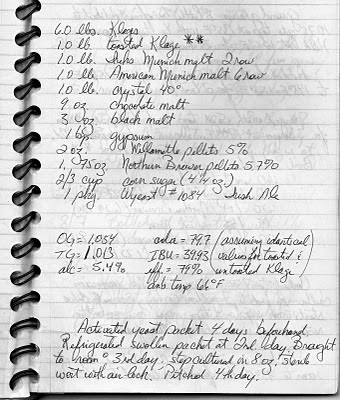 6.0 lbs. Klages
1.0 lb. toasted Klage **
1.0 lb. Munich malt 2 row
1.0 lb. American Munich malt 6 row
1.0 lb. crystal 40°
9 oz. chocolate malt
3.0 oz black malt
1 tsp. gypsum
2 oz. Willamette pellets 5%
1.75 oz Northern Brewer pellets 5.7%
2/3 cup corn sugar (4 1/4 oz)
1 pkg. Wyeast #1084 Irish Ale
OG = 1.054 ada = 79.7 (assuming identical
TG = 1.013 IBU = 39.93 values for toasted &
alc = 5.4% eff. = 79% untoasted Klage)
amb temp 66°F
Activated yeast packet 4 days beforehand.
Refrigerated swollen packet at 2nd day. Brought
to room ° 3rd day, step cultured on 8 oz. sterile
wort with air-lock. Pitched 4th day.